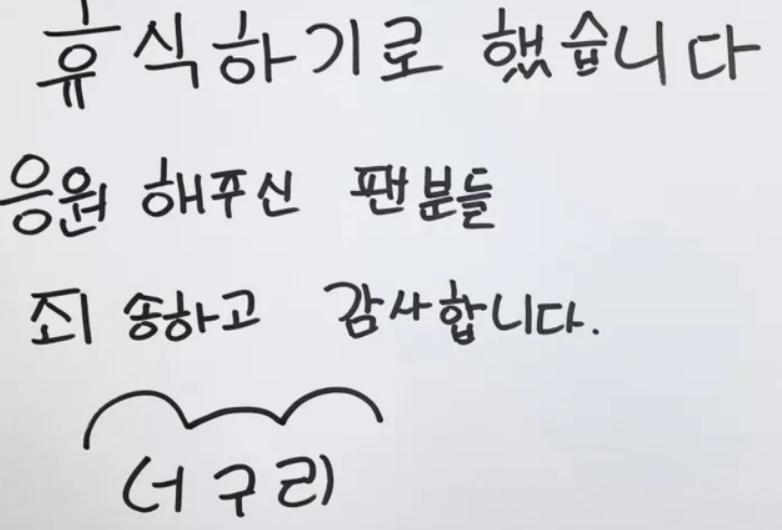 휴식하기로 했습니다
응원 해푸신 팬분들
죄송하고 감사합니다.
너구리